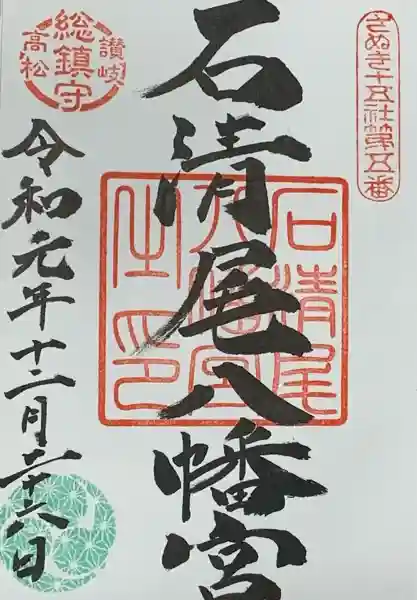 さぬき十五社第五番
石清尾八幡宮
石清尾
八幡宮
之印
讃岐
総鎮守
高松
令和元年十二月二十八日